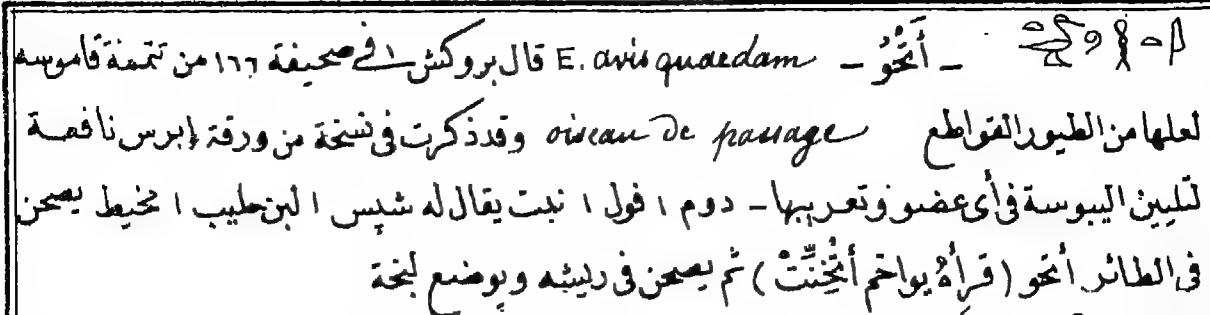 - أَتْخُو - E. avis quaedam قال بروكش ١ فى صحيفة ١٦٦ من تتمة قاموسه
لعلها من الطيور القواطع oiseau de passage وقد ذكرت فى نسخة من ورقة إبرس نافعة
لتليين اليبوسة فى أى عضو وتعريبها - دوم ١ فول ١ نبت يقال له شپس ١ لبن حليب ١ مخيط يصحن
فى الطائر أتخو (قرأهُ يواخم أَتْخِنِّتْ) ثم يصحن فى ريشه ويوضع لبخة